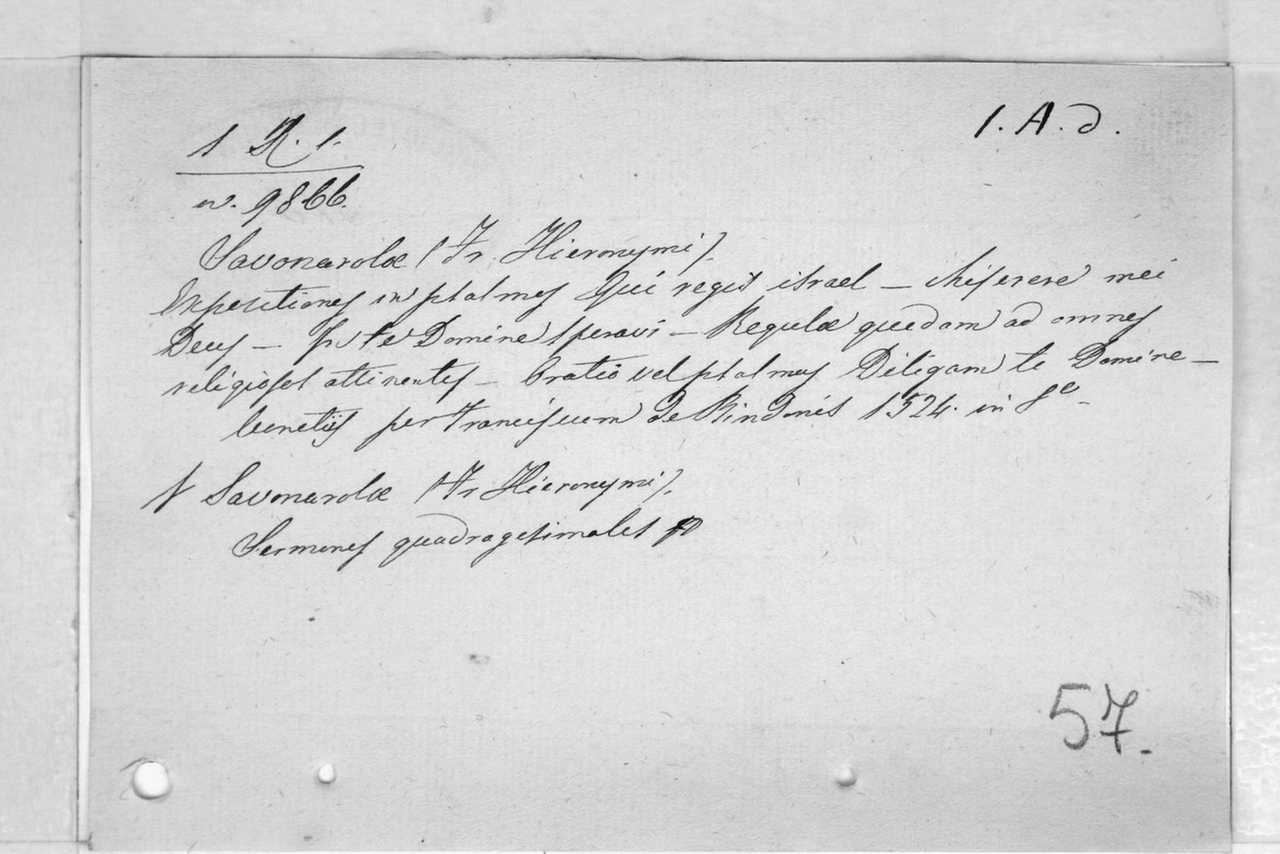 1. A. d.
1 R. 1.
n. 9866.
Savonarolæ (Fr. Hieronymi).
Expositiones in psalmos Qui regis israel — Miserere mei
Deus — In te Domine speravi — Regulæ quedam ad omnes
religiosos attinentes — Oratio vel psalmus Diligam te Domine —
Venetijs per Franciscum de Bindonis 1524. in 8°-
Savonarolæ (Fr. Hieronymi).
Sermones quadragesimales
57.